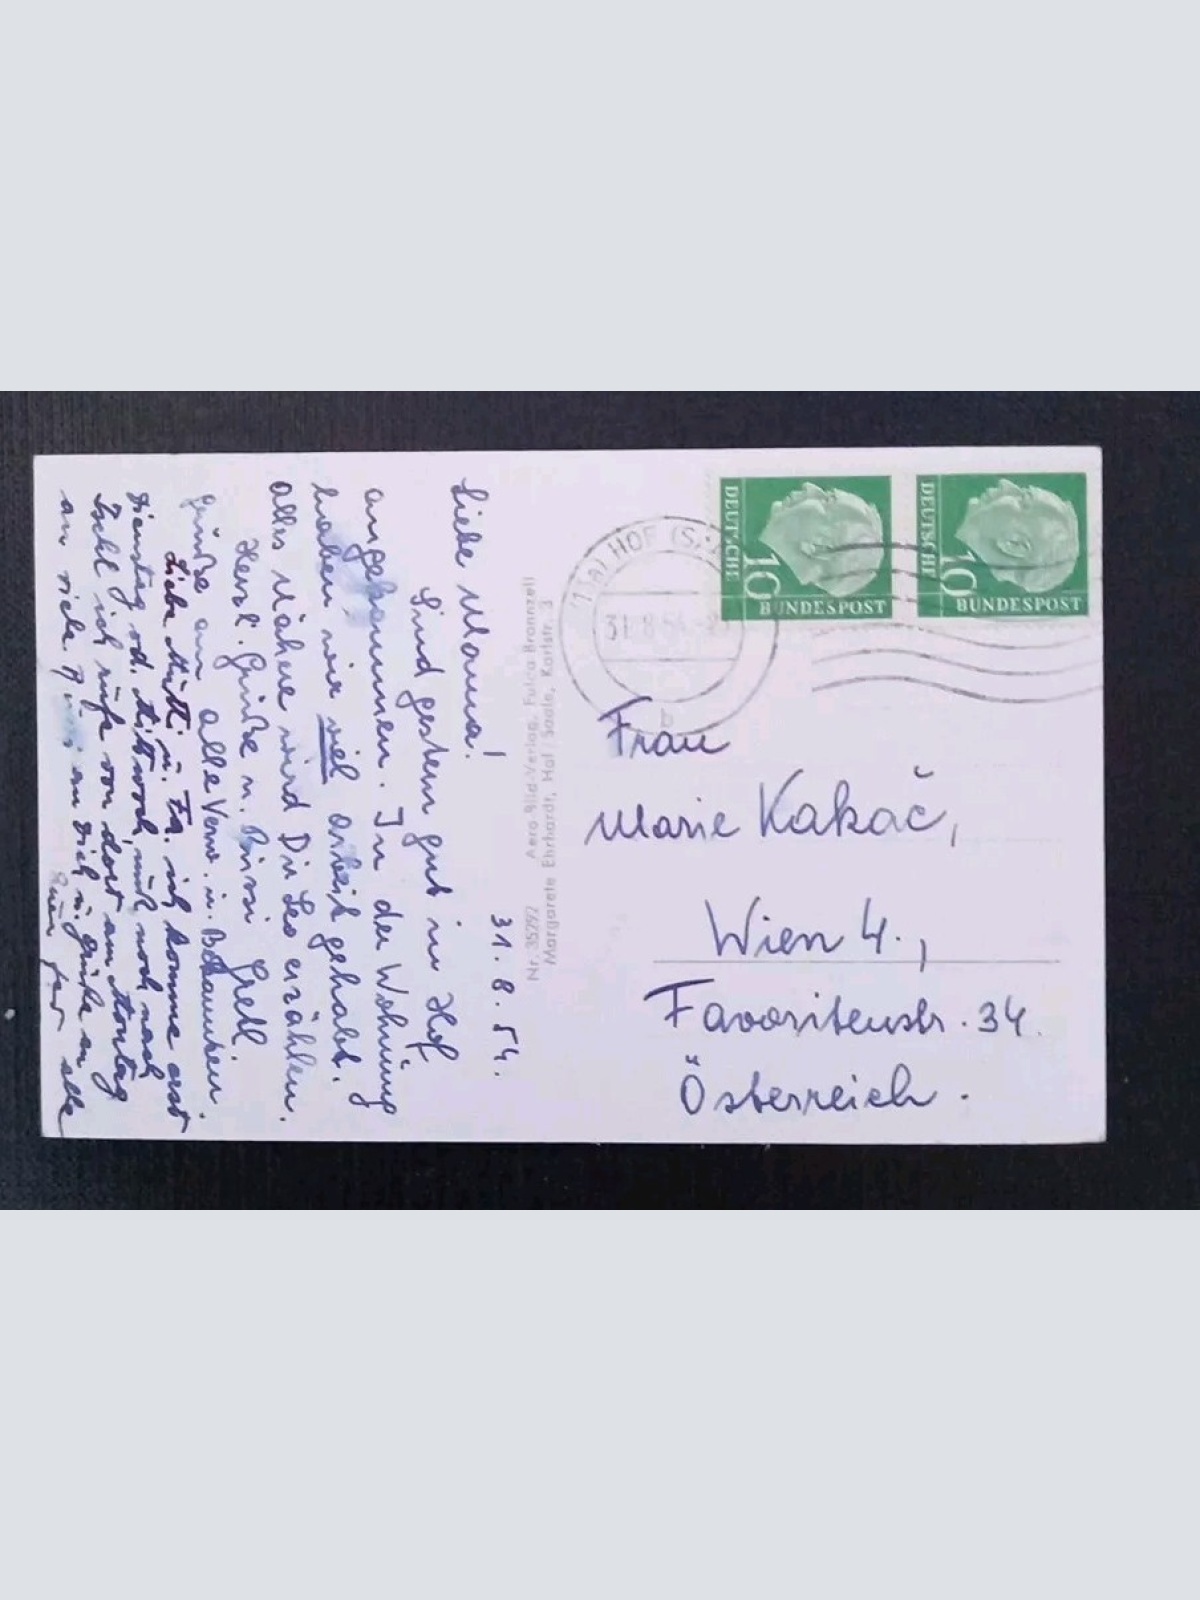 31.8.54.
Liebe Mama!
Sind gestern gut in Hof
angekommen. In der Wohnung
haben wir viel arbeit gehabt.
alles Nähere wird Dir Leo erzählen.
Herzl. Grüße u. Bussi Grell.
grüße an alle Verw. u. Bekannten.
Liebe Mutti u. Fa. ich komme erst
Dienstag od. Mittwoch, muß noch nach
Ischl ich rufe von dort am Montag
an viele an Dich u. grüße an alle
Nr. 35292 Aero-Bild-Verlag, Fulda-Bronnzell
Margarete Ehrhardt, Hof / Saale, Karlstr. 3
(13a) HOF (SAALE)
31.8.54
b
DEUTSCHE
10
BUNDESPOST
DEUTSCHE
10
BUNDESPOST
Frau
Marie Kakač,
Wien 4.,
Favoritenstr. 34.
Österreich.